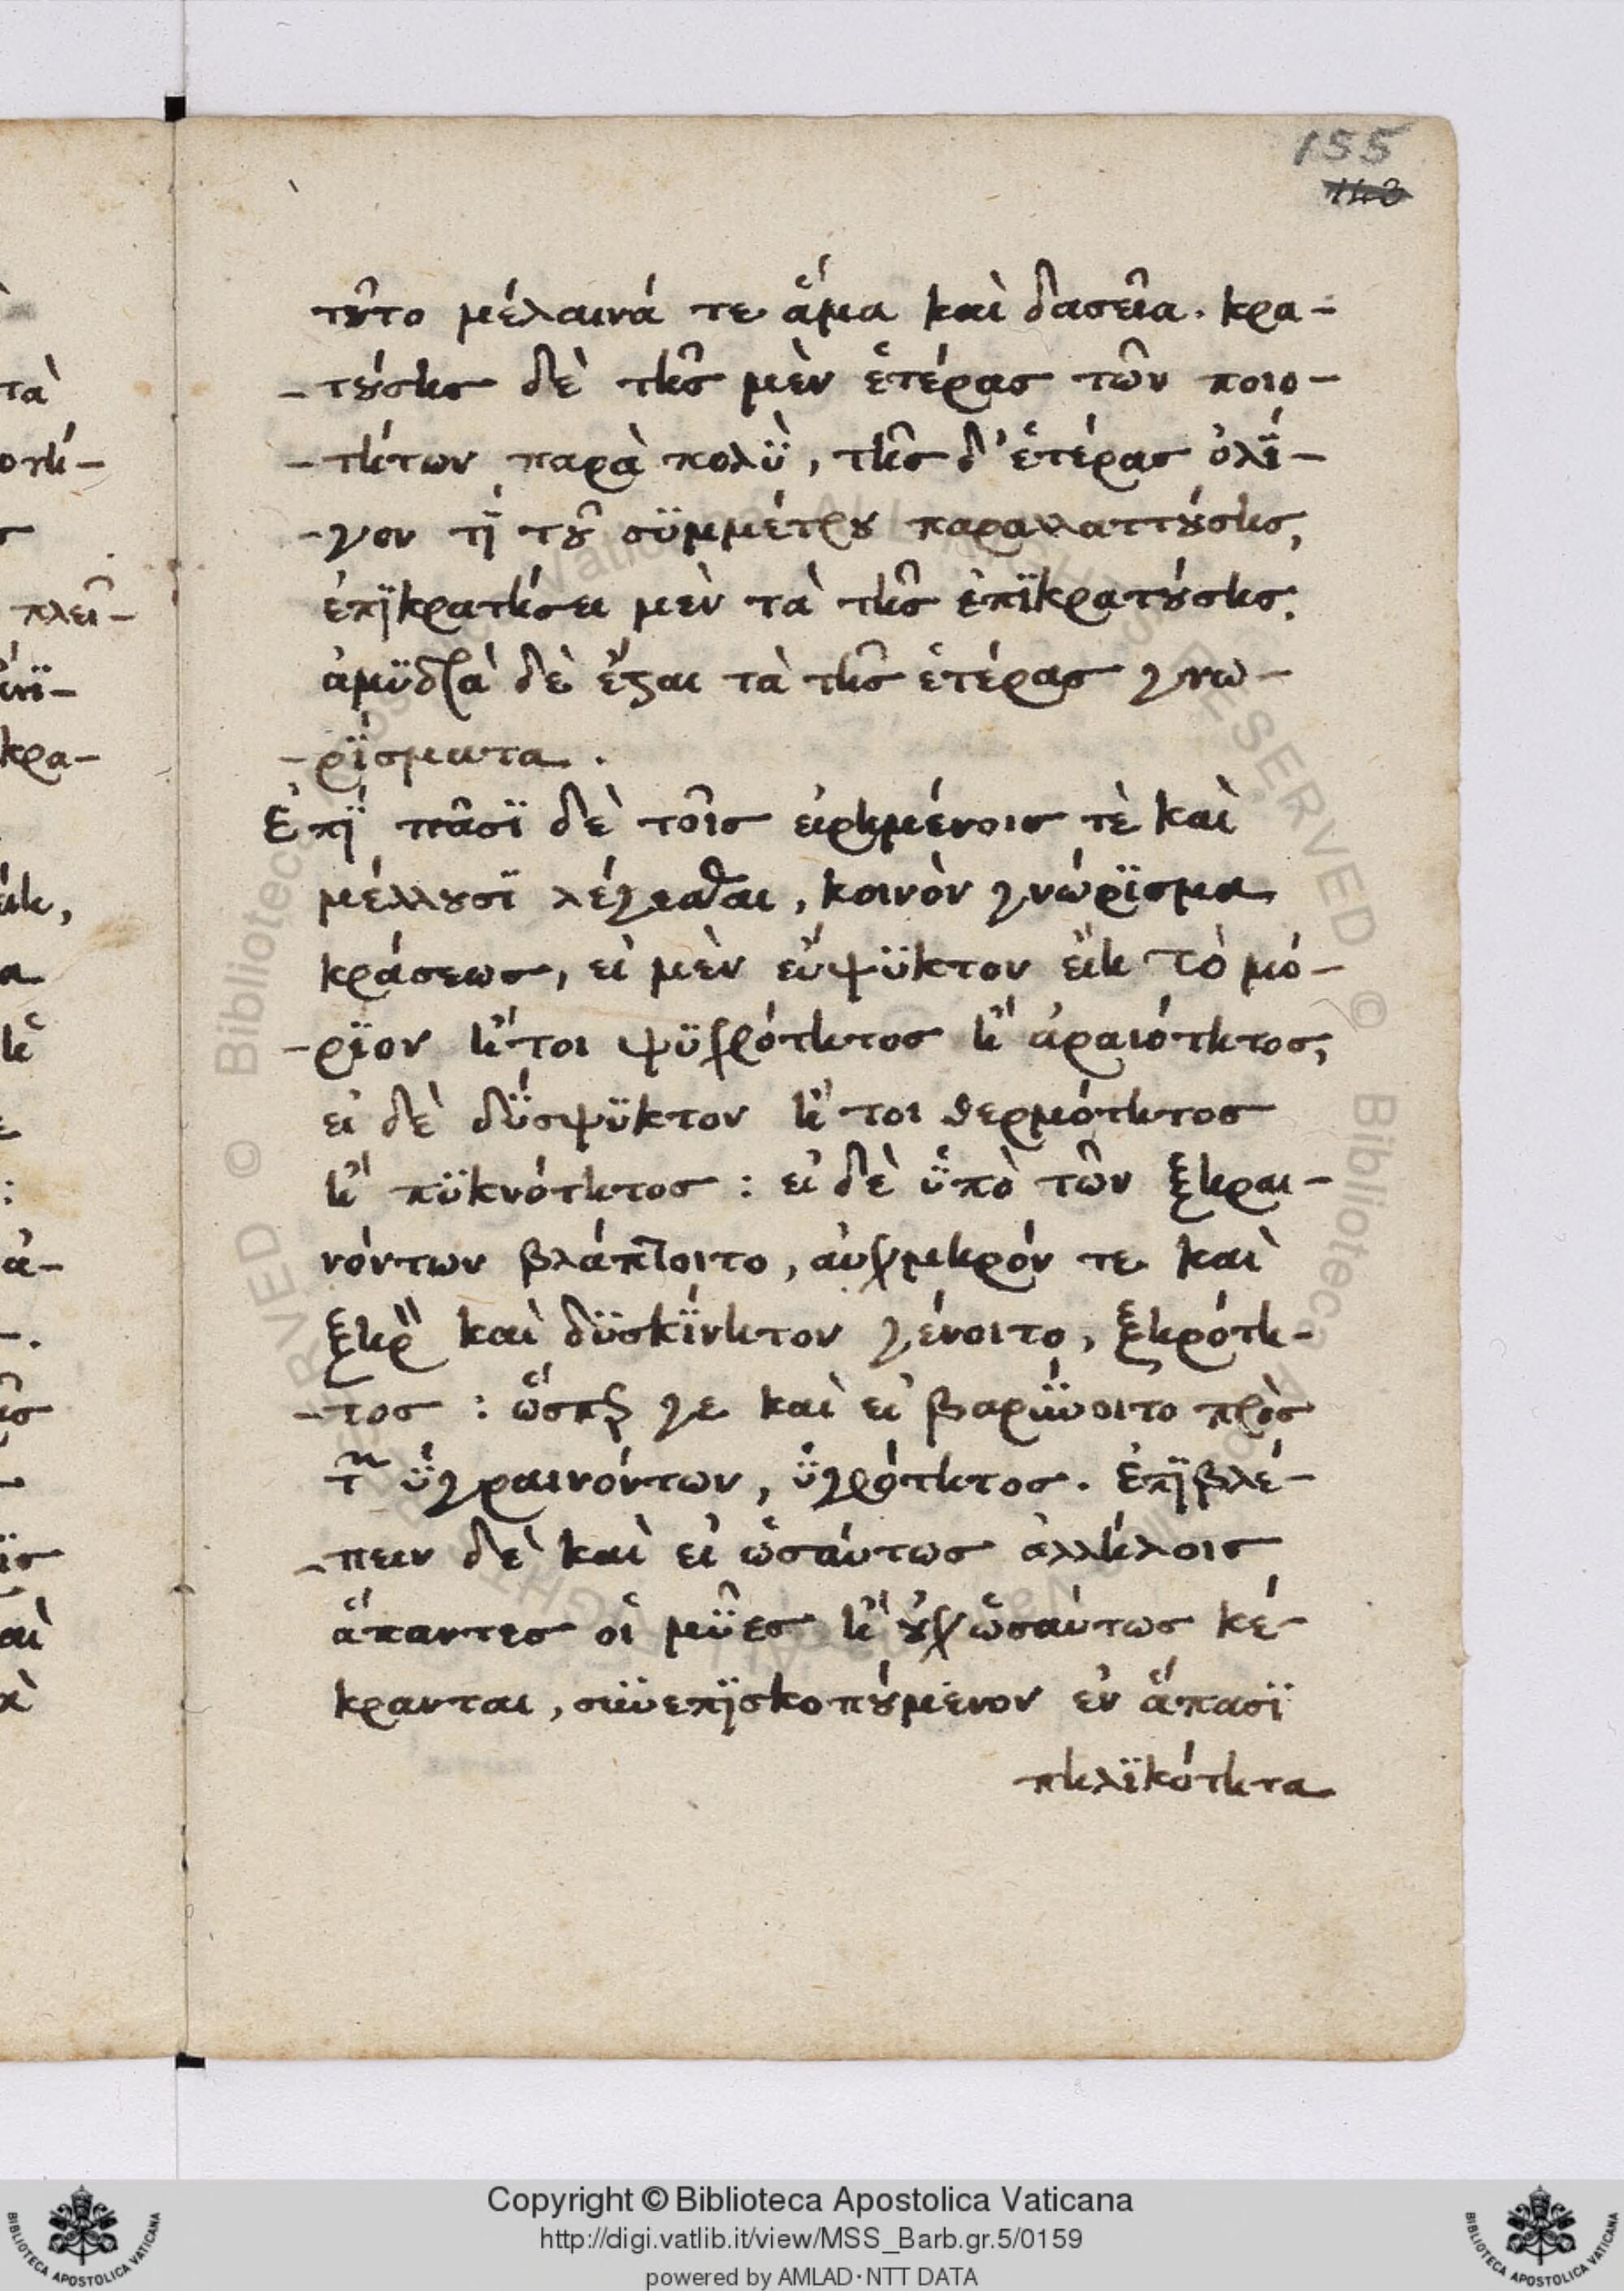 155
148
τοῦτο μέλαινά τε ἅμα καὶ δασεῖα. κρα-
-τούσης δὲ τῆς μὲν ἑτέρας τῶν ποιο-
-τήτων παρὰ πολὺ, τῆς δ' ἑτέρας ὀλί-
-γον τῒ τοῦ σϋμμέτρου παραλλαττούσης,
ἐπϊκρατήσει μὲν τὰ τῆς ἐπϊκρατούσης.
ἀμϋδρά δὲ ἔσται τὰ τῆς ἑτέρας γνω-
-ρίσματα.
Ἐπῒ πᾶσϊ δὲ τοῖς εἰρημένοις τὲ καὶ
μέλλουσϊ λέγεσθαι, κοινὸν γνώρϊσμα
κράσεως, εἰ μὲν εὔψϋκτον εἴη τὸ μό-
-ρϊον ἤτοι ψϋχρότητος ἢ ἀραιότητος,
εἰ δὲ δύσψϋκτον ἤ τοι θερμότητος
ἢ πϋκνότητος : εἰ δὲ ὑπὸ τῶν ξηραι-
νόντων βλάπτοιτο, αὐχμηρόν τε καὶ
ξηρ̏ καὶ δϋσκίνητον γένοιτο, ξηρότη-
-τος : ὥσπερ γε καὶ εἰ βαρύνοιτο πρὸς
τῶν ὑγραινόντων, ὑγρότητος. ἐπϊβλέ-
-πειν δὲ καὶ εἰ ὡσαύτως ἀλλήλοις
ἅπαντες οἱ μῦες ἢ οὐχ ὡσαύτως κέ-
κρανται, σϋνεπϊσκοπούμενον ἐν ἅπασϊ
πηλϊκότητα
τὰ
πλεῖ-
κρα-
ἀ-
Copyright © Biblioteca Apostolica Vaticana
http://digi.vatlib.it/view/MSS_Barb.gr.5/0159
powered by AMLAD·NTT DATA
BIBLIOTECA APOSTOLICA VATICANA
BIBLIOTECA APOSTOLICA VATICANA